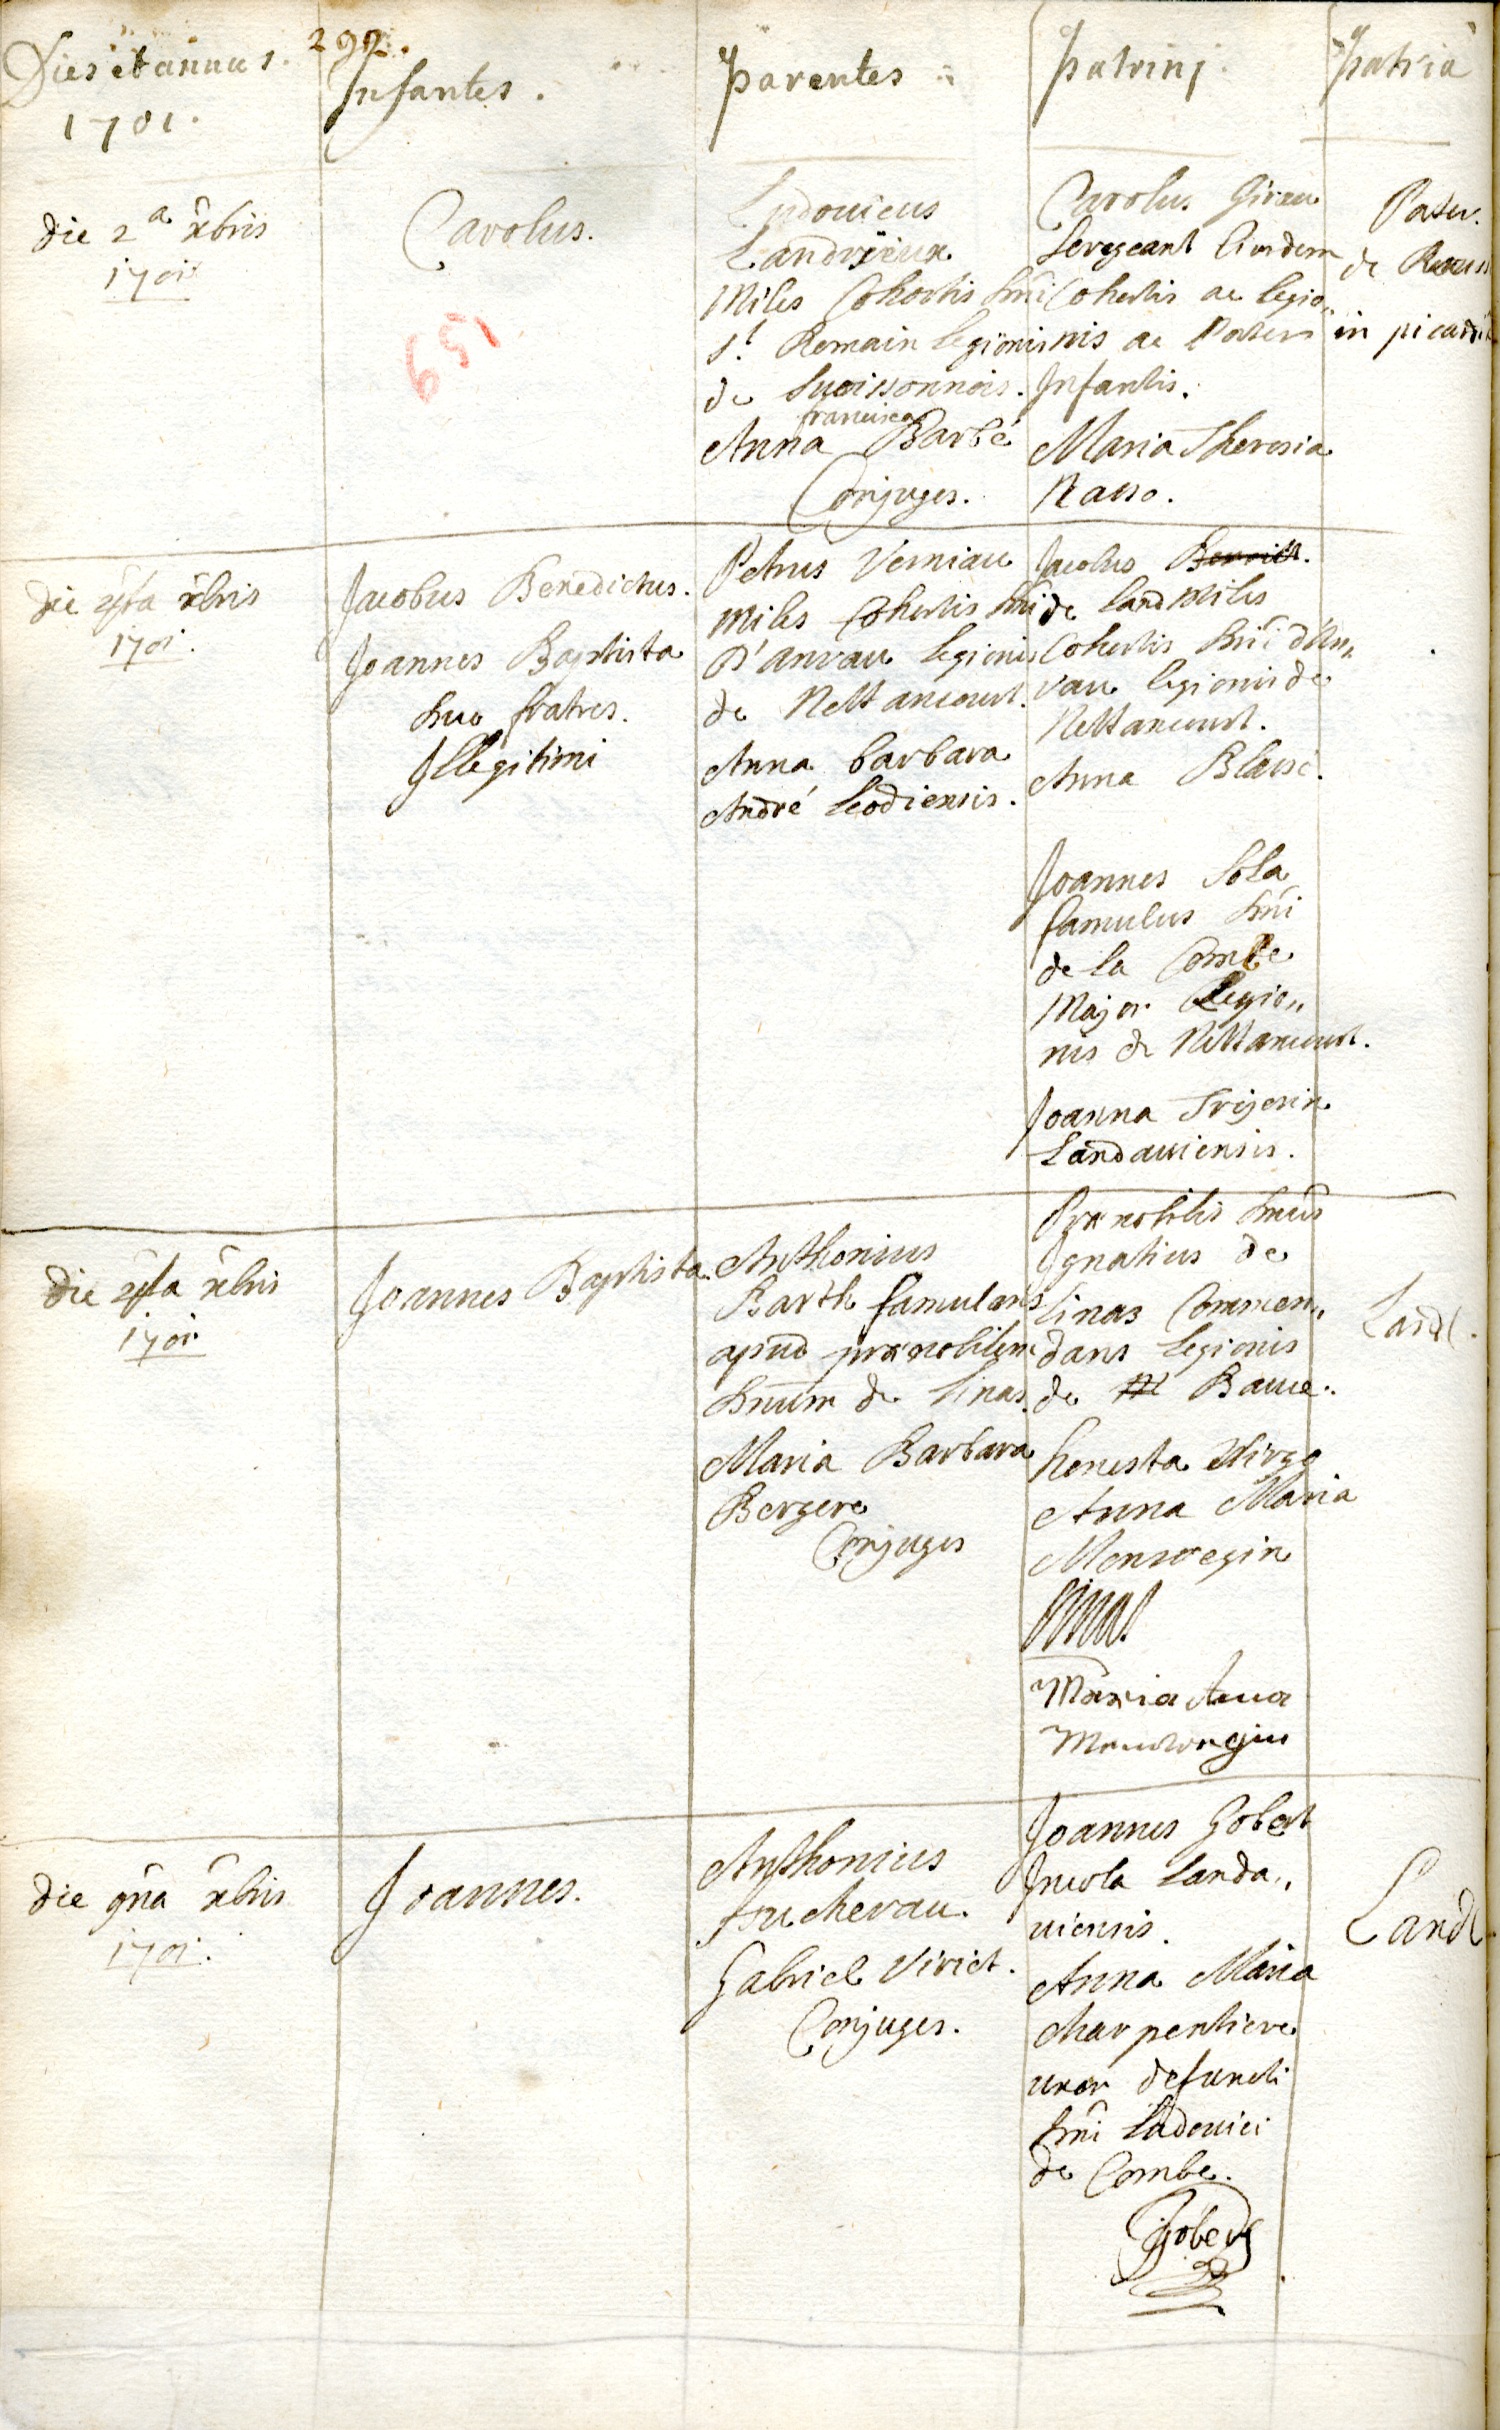 292.
Dies et annus.
1701.
Infantes.
Parentes
Patrini
Patria
die 2a xbris
1701
Carolus.
159
Ludovicus
Landrieux
Miles Cohortis dni
St Remain legionis
de Suoissonnois.
francisca
Anna Barbé
Conjuges.
Carolus Girau
Sergeant Eiusdem
Cohertis ac legio„
nis ac Pater
Infantis.
Maria Theresia
Pater
de
in picardia
die xbris
1701.
Jacobus Benedictus.
Joannes Baptista
duo fratres.
Illegitimi
Petrus Verniau
miles Cohertis dni
D'anvau legionis
de Nettancourt.
Anna barbara
André leodiensis.
Jacobus
de land Miles
Cohertis dni d'An„
vau legionis de
Nettancourt.
Anna Blaise.
Joannes Sola
famulus dni
de la Combe
Major Legio„
nis de Nettancourt.
Joanna
Landaviensis.
die xbris
1701
Joannes Baptista.
Anthonius
Barth famulans
apud prænobilem
dnum de linas.
Maria Barbara
Bergere
Conjuges
Prænobilis dnus
Ignatius de
linas Commen„
dans legionis
de Bauce.
honesta Virgo
Anna Maria
Monsregin
Maria Anna
Land.
die 9na xbris
1701.
Joannes.
Anthonius
Gabriel Viriet.
Conjuges.
Joannes Gobert
Incola landa„
viensis.
Anna Maria
charpentiere
uxor defuncti
dni Ludovici
de Combe.
Gobert
Land